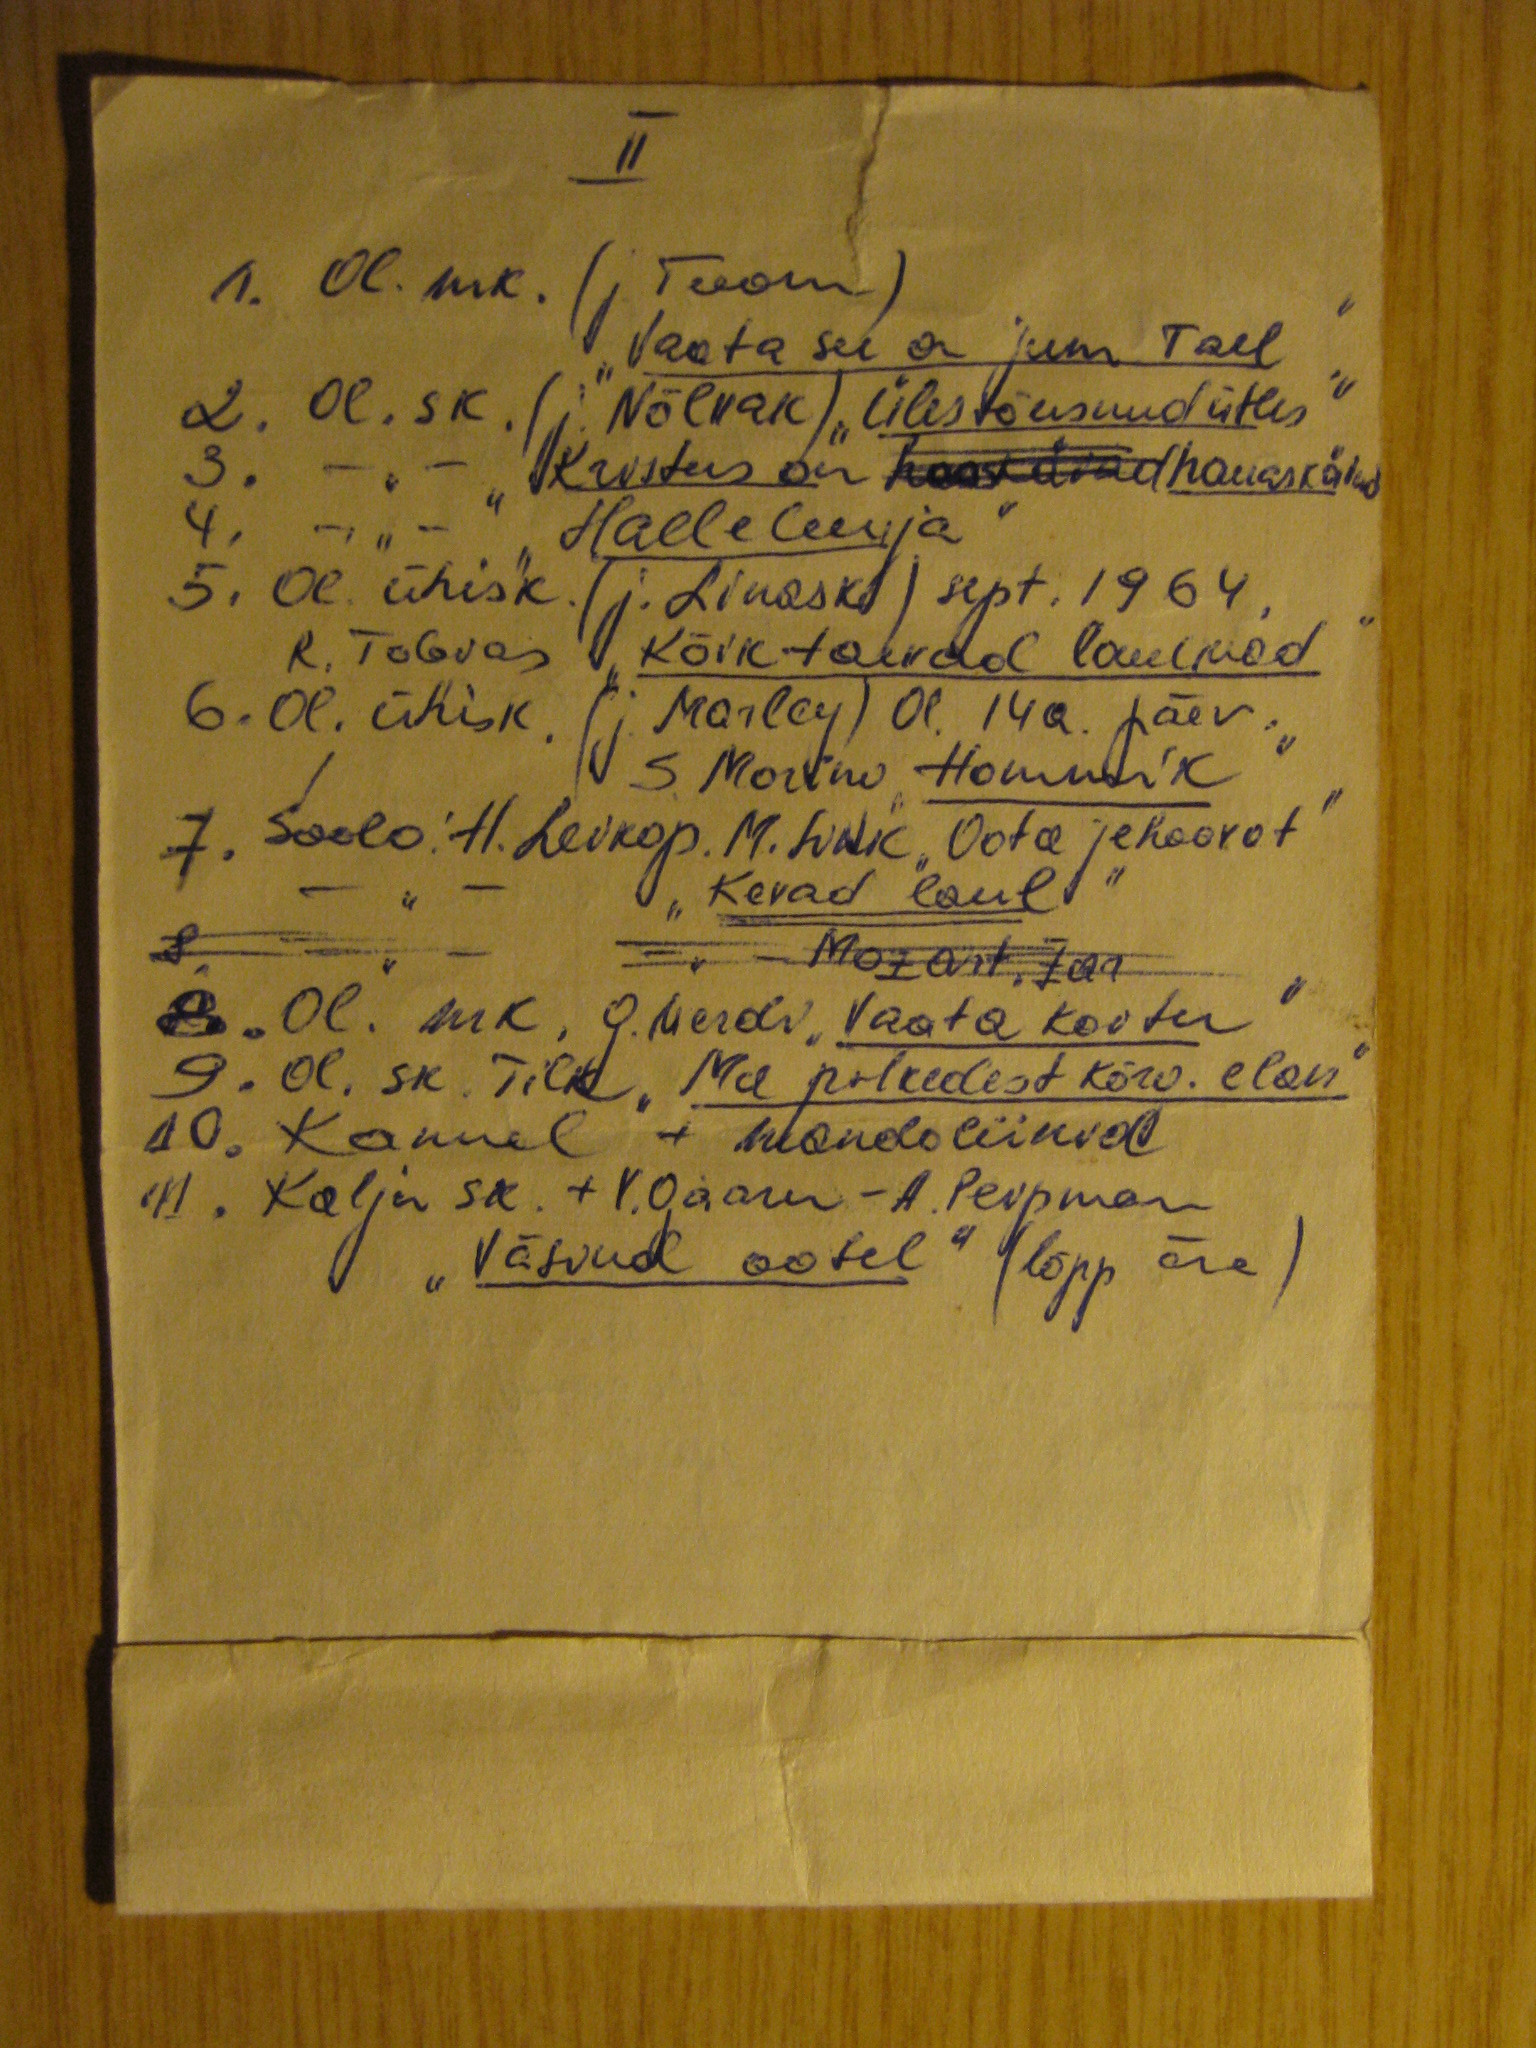 II
1. Ol. mk. (j. Toom)
„Vaata see on jum Tall"
2. Ol. sk. (j. Nõlvak) „Ülestõusnud ütles"
3. — „ — „Kristus on hauaskäind
4. — „ — „Halleluuja"
5. Ol. ühisk. (j. Linask) sept. 1964,
R. Tobvas „Kõik taevad laulvad"
6. Ol. ühisk. (j. Marley) Ol. 14a. päev.
S. Morino „Hommik"
7. Soolo: H. Leikop. M. Sink „Oota jehoovat"
— „ — „Kevad laul"
8. — „ — — „ — Mozart.
8. Ol. mk, G. Verdi „Vaata koitu"
9. Ol. sk. Tilk „Ma pilvedest kõrg. elan"
10. Kannel + mandoliinid
11. Kalju sk. + V. Ojaaru - A. Peipman
„Väsind ootel" (lõpp ära)